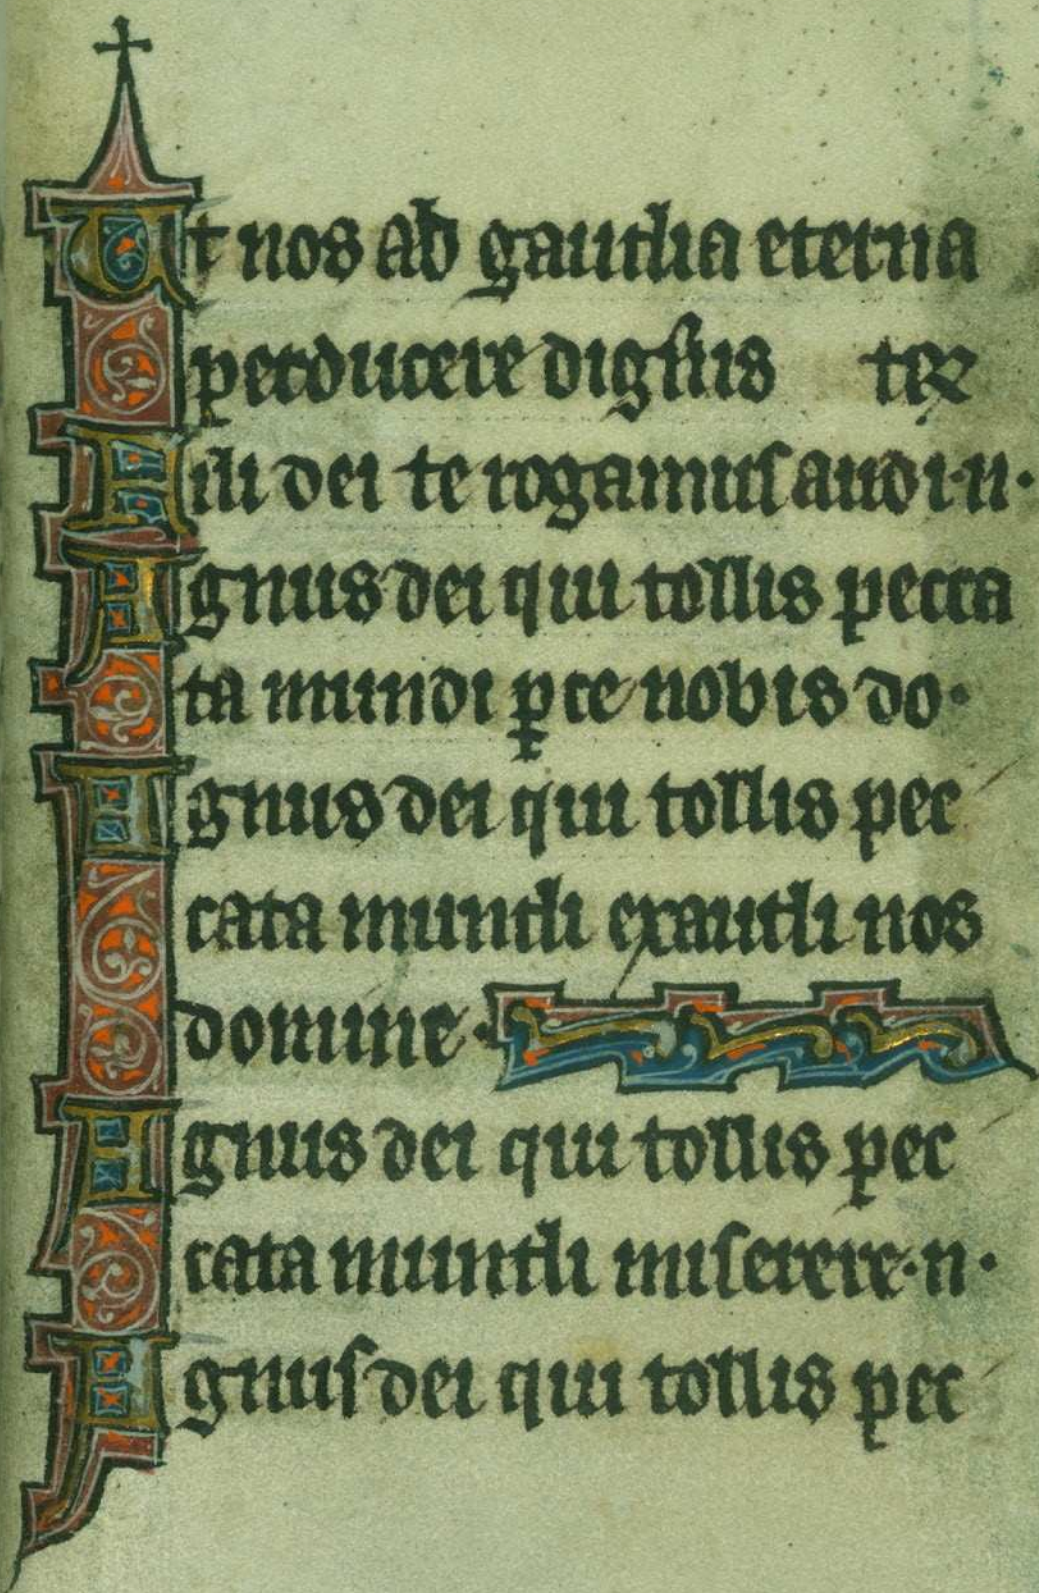 Ut nos ad gaudia eterna
perducere digneris ter
Fili dei te rogamus audi·n·
Agnus dei qui tollis pecca
ta mundi pce nobis do·
Agnus dei qui tollis pec
cata mundi exaudi nos
domine·
Agnus dei qui tollis pec
cata mundi miserere·n·
Agnus dei qui tollis pec